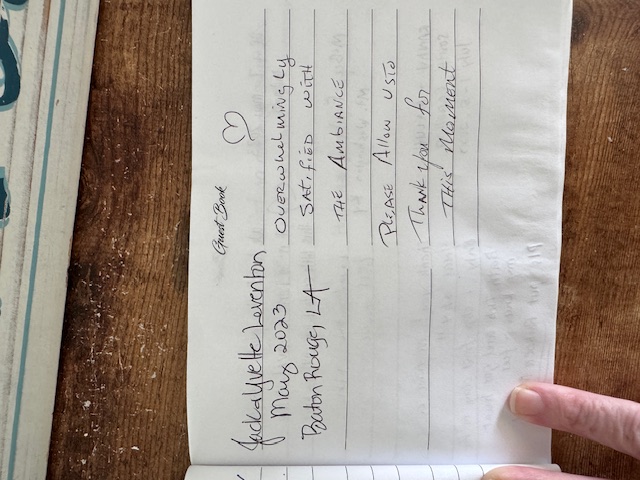 Guest Book
Jack & Yvette Leventon,
May 2023
Baton Rouge, LA
OVERWHELMINGLY
SATIFIED WITH
THE AMBIANCE
PLEASE Allow US TO
THANK you for
THIS MOMENT